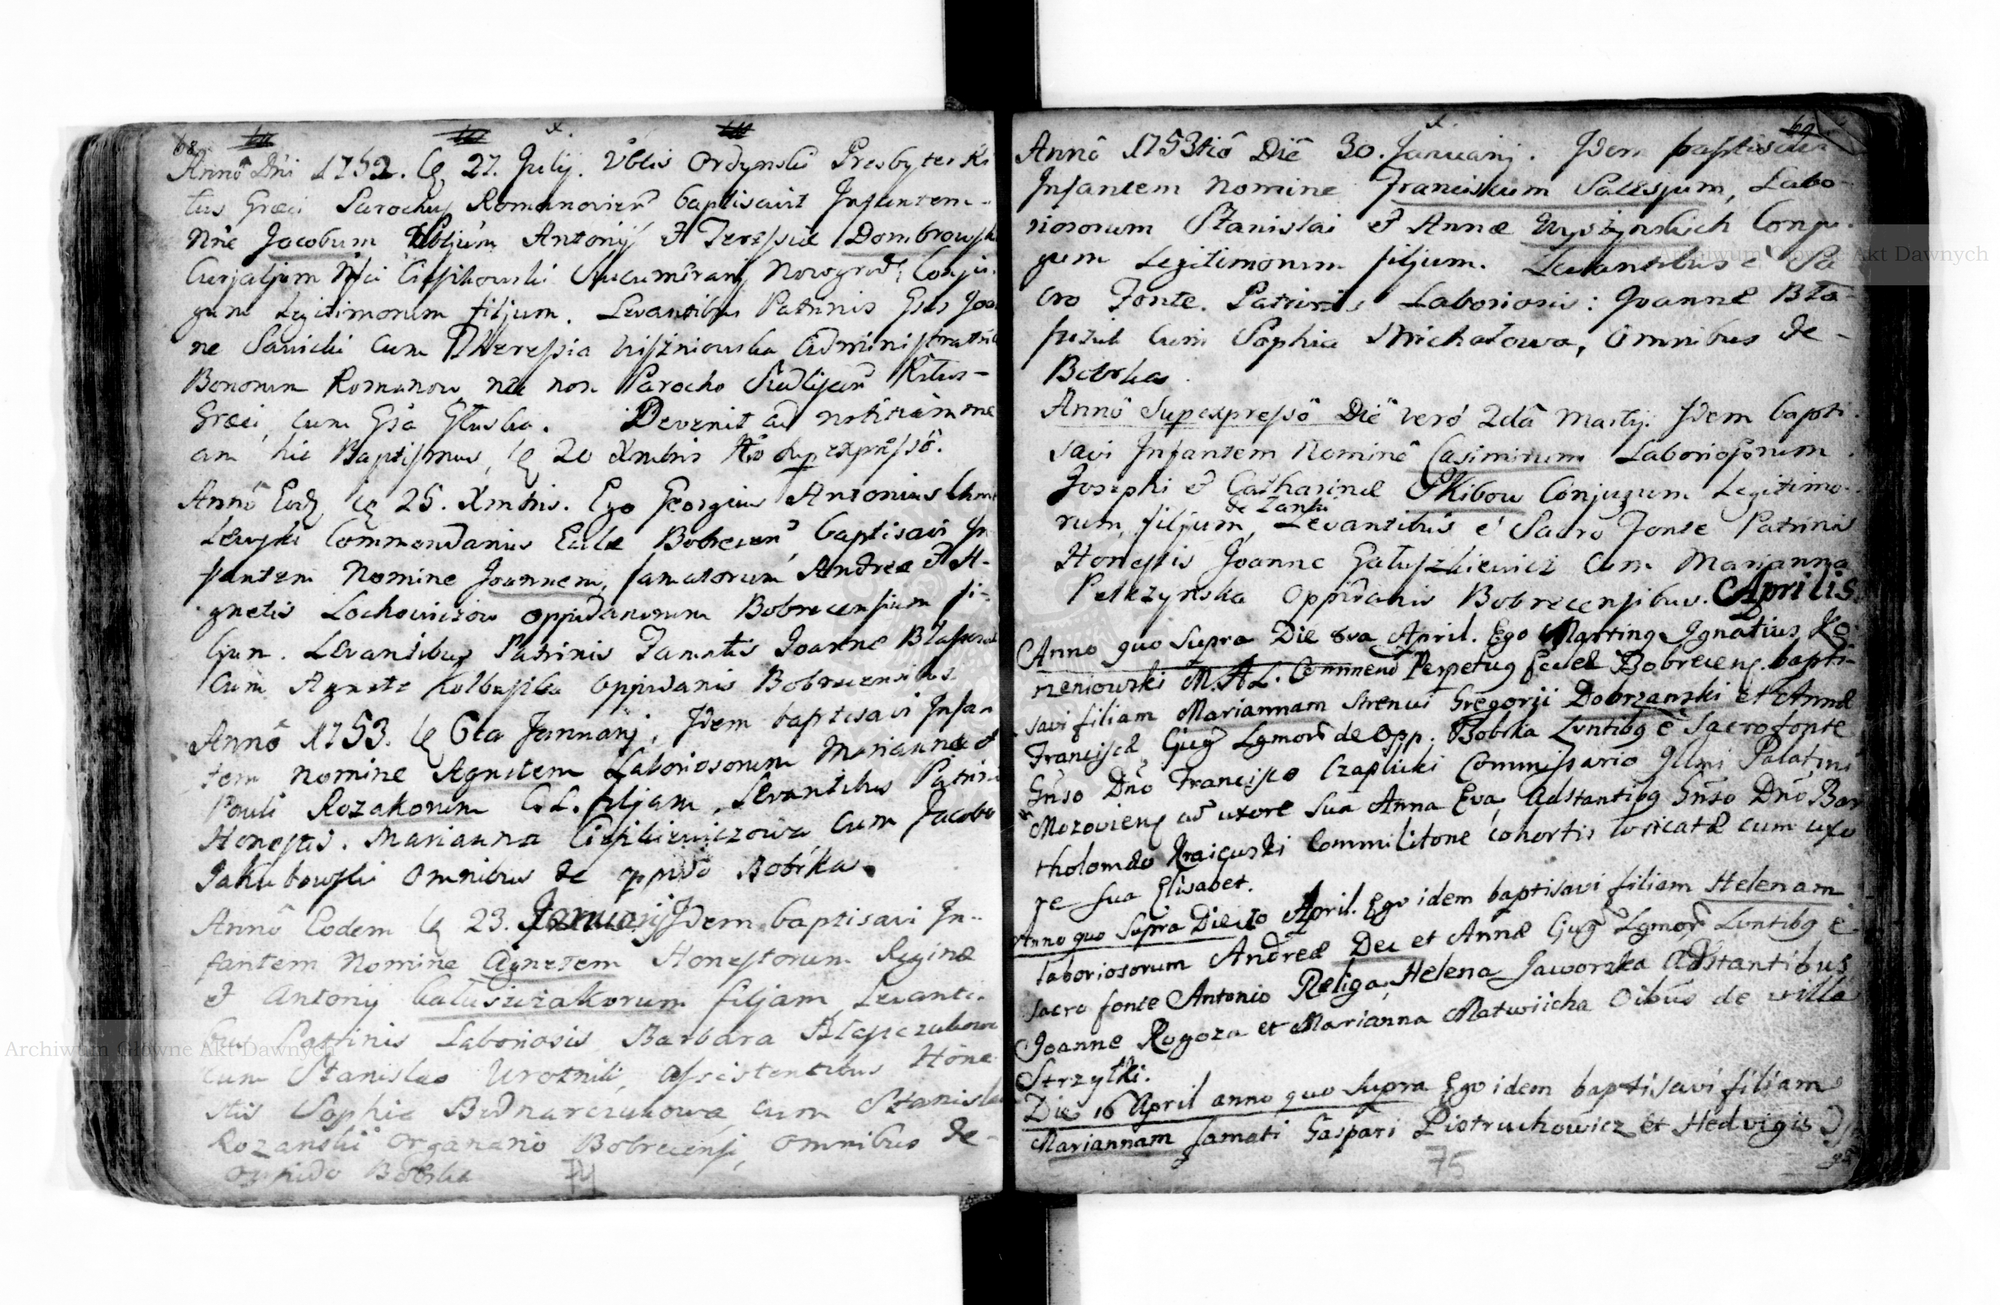 68
Annô Dni 1752. 27. Julij. Vblis Ordynski Presbyter Ri
tus Græci Parochus Romanovien baptisavit Infantem
Nne Jacobum filium Antonij et Teressiæ Dombrowski
Nowogrod: Conju
gum Legitimorum filjum. Levantibus Patrinis Gsis Joan
ne Sawicki cum Theressia Wiszniowska Administratrice
Bonorum Romanow nec non Parocho Ritus
Græci, cum Gsa Gluska. Devenit ad notitiam me
am hic Baptismus, 20 Xmbris supexpressô.
Annô Eod 25. Xmbris. Ego Georgius Antonius Chm
Lewski Commendarius Eccliæ Bobrecen baptisavi In
fantem Nomine Joannem, famatorum Andreæ et A-
gnetis Lochowiczow oppidanorum Bobrecensium fi-
ljum. Levantibus Patrinis Famatis Joanne
cum Agnete Kolbuska oppidanis Bobrecensibus
Annô 1753. 6ta Januarij, Idem baptisavi Infan
tem nomine Agnetem Laboriosorum Mariannæ et
Pauli Rozakorum C. L. filjam, Levantibus Patrinis
Honestis. Marianna cum Jacobo
Jakubowski omnibus de oppido Bobrka.
Annô Eodem 23. Januarij Idem baptisavi In-
fantem Nomine Agnetem Honestorum Reginæ
et Antonij filjam Levanti-
bus Patrinis Laboriosis Barbara
cum Stanislao Woznik, assistentibus Hone
stis Sophia Bednarczukowa cum Stanislao
Rozanski organario Bobrecensi, omnibus de
oppido Bobrka
74
69
Annô 1753tiô Diê 30. Januarij. Idem baptisavi
Infantem Nomine Franciskum Salesjum, Labo-
riosorum Stanislai et Annæ Conju
gum Legitimorum filjum. Levantibus e Sa
cro Fonte. Patrinis Laboriosis: Joanne Bła-
szczuk cum Sophia Michałowa, omnibus de
Bobrka.
Annô Supexpressô Diê verô 2dâ Martij. Idem bapti
savi Infantem Nomine Casimirum Laboriosorum
Josephi et Catharinæ Skibow Conjugum Legitimo-
rum, filjum, Levantibus e Sacro Fonte Patrinis
de Lanki
Honestis Joanne Gałuszkiewicz cum Marianna
Petrzynska Oppidanis Bobrecensibus. Aprilis.
Anno quo Supra Die 6va April. Ego Martinus Ignatius Ko
rzeniowski M. A. L. Commend Perpetus Eccl Bobrecens bapti-
savi filiam Mariannam Strenui Gregorij Dobrzanski et Annæ
Franciscæ Cjug Lgmor de Opp. Bobrka Lvntibg e Sacro fonte
Gnso Dno Francisco Czaplicki Commissario Illmi Palatini
Mozoviens cu uxore sua Anna Eva, Adstantibg Gnso Dno Bar
tholomeo Kraicuski Commilitone Cohortis loricatæ cum uxo
re sua Elisabet.
Anno quo Supra Die 10 April. Ego idem baptisavi filiam Helenam
laboriosorum Andreæ Dec et Annæ Cjug Lgmor Lvntibg e
sacro fonte Antonio Religa, Helena Jaworska Adstantibus
Joanne Rogoza et Marianna Matwiicha Oibus de villa
Strzyłki.
Die 16 April anno quo supra Ego idem baptisavi filiam
Mariannam famati Gaspari Piotruchowicz et Hedvigis
75
Archiwum Główne Akt Dawnych
Archiwum Główne Akt Dawnych